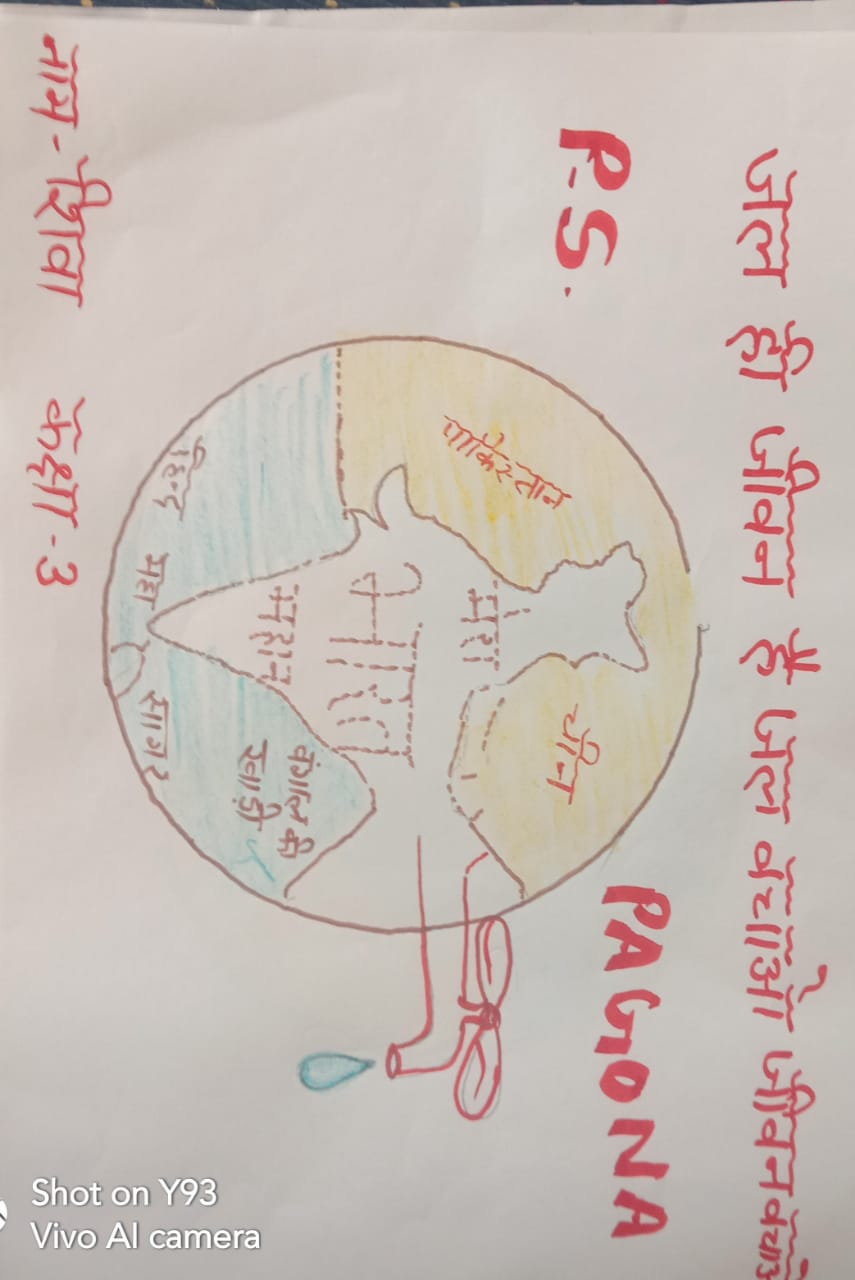 जल ही जीवन है जल बचाओ जीवन बचाओ
P.S. PAGONA
पाकिस्तान
चीन
मेरा
भारत
महान
बंगाल की
खाड़ी
हिन्द महा सागर
नाम - शिवा कक्षा - 3
Shot on Y93
Vivo AI camera